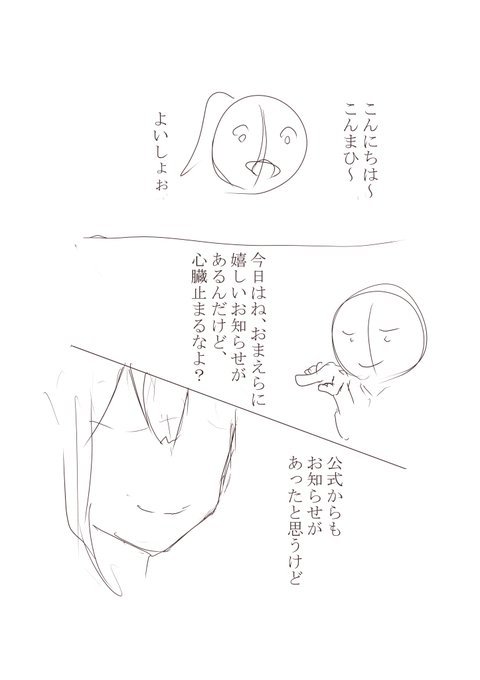 こんにちは〜
こんまひ〜
よいしょぉ
今日はね、おまえらに
嬉しいお知らせが
あるんだけど、
心臓止まるなよ？
公式からも
お知らせが
あったと思うけど